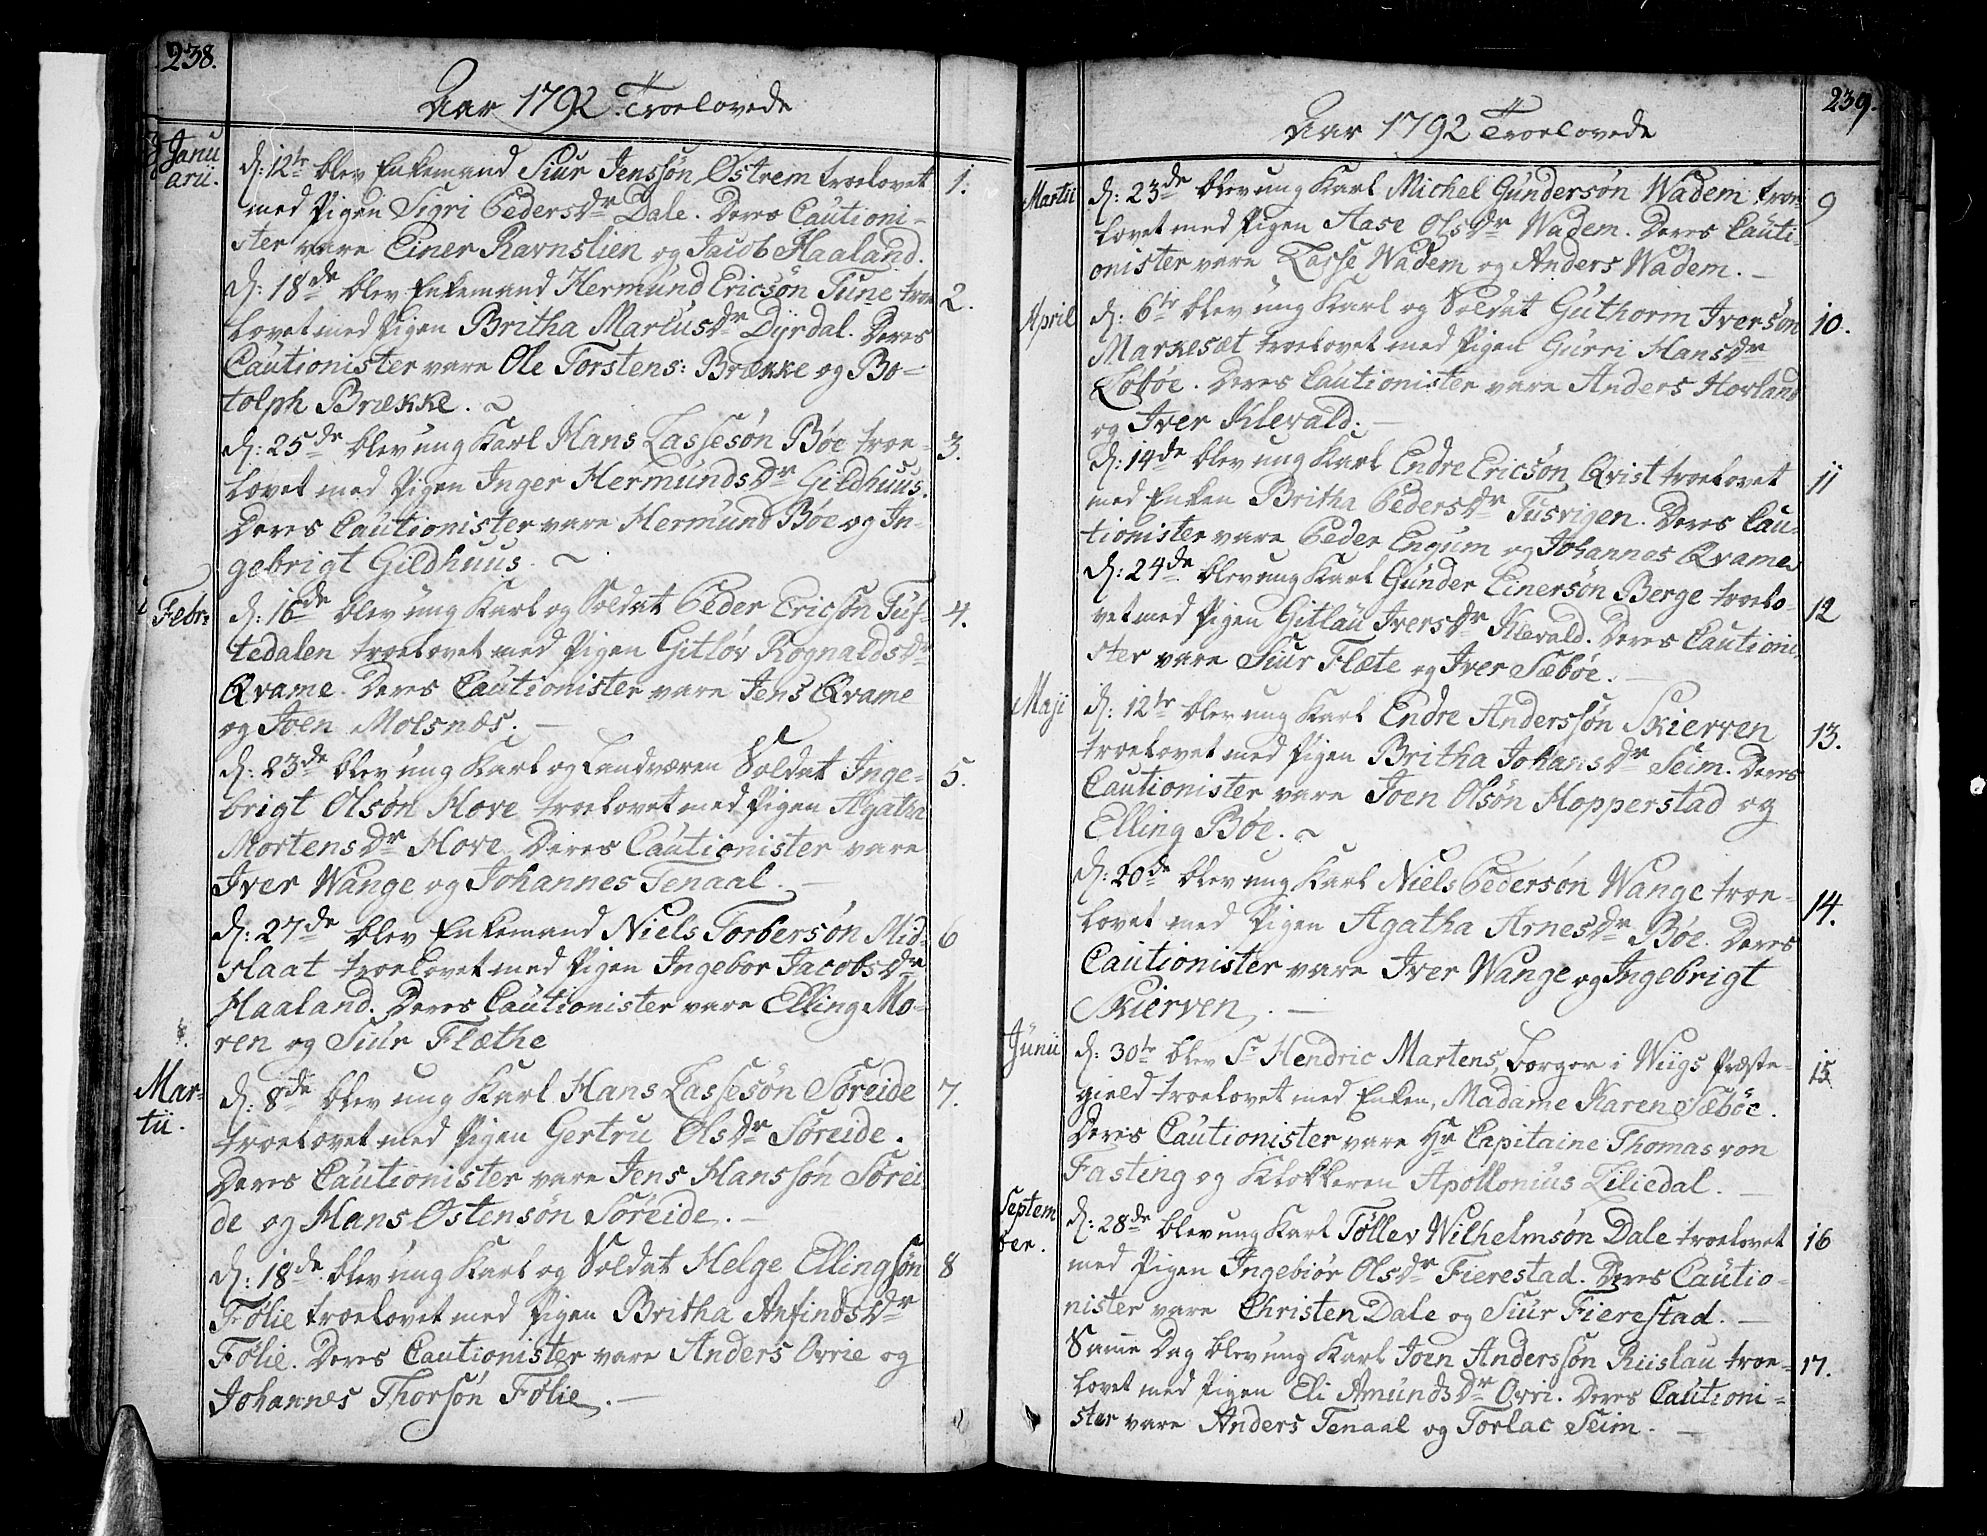 238.
Aar 1792 Troelovede
Janu
arii.
d: 12te blev Enkemand Siur Jenssøn Østrem troelovet 1.
med Pigen Sigri PedersDr Dale. Deres Cautioni-
ster vare Einer Ravnslien og Jacob Haaland.
d: 18de blev Enkemand Hermund Ericsøn Tune troe 2.
lovet med Pigen Britha MarcusDr Dÿrdal. Deres
Cautionister vare Ole Torstens: Brække og Bo-
tolph Brække.
d: 25de blev ung Karl Hans Lassesøn Bøe troe- 3.
lovet med Pigen Inger HermundsDr Gildhuus.
Deres Cautionister vare Hermund Bøe og In-
gebrigt Gildhuus.
Febr:
d: 16de blev ung Karl og Soldat Peder Ericsøn Tuf- 4.
tedalen troelovet med Pigen Gitløv RognaldsDr
Qvame. Deres Cautionister vare Jens Qvame
og Joen Molsnæs.
d: 23de blev ung Karl og Landværen Soldat Inge- 5.
brigt Olsøn Hove troelovet med Pigen Agatha
MortensDr Hove. Deres Cautionister vare
Iver Wange og Johannes Tenaal.
d: 27de blev Enkemand Niels Torbersøn Mid- 6
flaat troelovet med Pigen Ingebor JacobsDr
Haaland. Deres Cautionister vare Elling Mo-
ren og Siur Flæthe
Mar-
tii.
d: 8de blev ung Karl Hans Lassesøn Søreide 7.
troelovet med Pigen Gertru OlsDr Søreide.
Deres Cautionister vare Jens Hanssøn Sørei
de og Hans Ostensøn Søreide.
d: 18de blev ung Karl og Soldat Helge Ellingsøn 8
Følie troelovet med Pigen Britha AnfindsDr
Følie. Deres Cautionister vare Anders Ovrie og
Johannes Thorsøn Følie.
239.
Aar 1792 Troelovede
Martii
d: 23de blev ung Karl Michel Gundersøn Wadem troe- 9
lovet med Pigen Aase OlsDr Wadem. Deres Cauti-
onister vare Lasse Wadem og Anders Wadem.
April
d: 6te blev ung Karl og Soldat Guthorm Iversøn 10.
Markesæt troelovet med Pigen Gurri HansDr
Lobøe. Deres Cautionister vare Anders Hovland
og Iver Klevald.
d: 14de blev ung Karl Endre Ericsøn Qvist troelovet 11
med Enken Britha PedersDr Tusvigen. Deres Cau-
tionister vare Peder Engum og Johannes Qvame
d: 24de blev ung Karl Gunder Einersøn Berge troelo- 12
vet med Pigen Gitlau IversDr Klevald. Deres Cautioni-
ster vare Siur Flæte og Iver Sæbøe.
Maji
d: 12te blev ung Karl Endre Anderssøn Skierven 13.
troelovet med Pigen Britha JohansDr Seim. Deres
Cautionister vare Joen Olsøn Hopperstad og
Elling Bøe.
d: 20de blev ung Karl Niels Pedersøn Wange troe- 14.
lovet med Pigen Agatha ArnesDr Bøe. Deres
Cautionister vare Iver Wange og Ingebrigt
Skierven.
Junii
d: 30te blev Sr Hendric Martens, Borger i Wiigs Præste- 15
gield troelovet med Enken, Madame Karen Sæbøe.
Deres Cautionister vare Hr Capitaine Thomas von
Fasting og Klokkeren Apollonius Liliedal.
Septem
ber.
d: 28de blev ung Karl Tøllev Wilhelmsøn Dale troelovet 16
med Pigen Ingebiør OlsDr Fierestad. Deres Cautio-
nister vare Christen Dale og Siur Fierestad.
Samme Dag blev ung Karl Joen Anderssøn Riislau troe- 17.
lovet med Pigen Eli AmundsDr Ovri. Deres Cautioni-
ster vare Anders Tenaal og Torlac Seim.